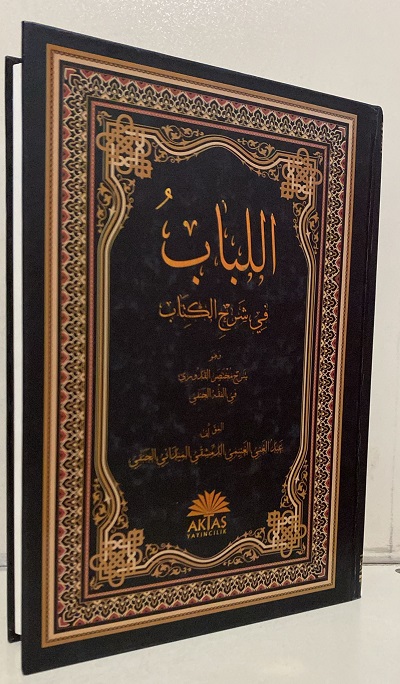 اللبابُ
في شَرحِ الكِتابِ
وهو
شرح مختصر القدوري
في الفقه الحنفي
عبد الغني الغنيمي الدمشقي الميداني الحنفي
AKTAŞ
YAYINCILIK